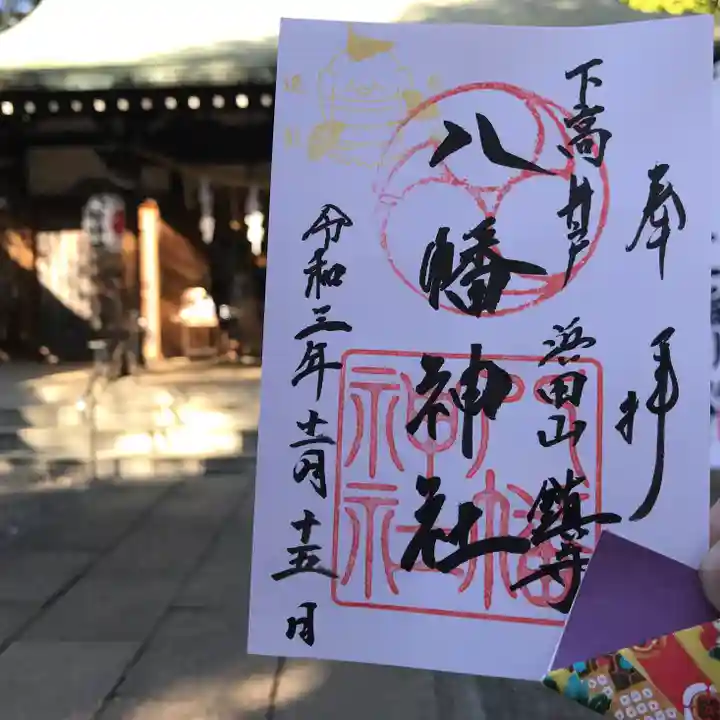 奉拝
下高井戸
浜田山 鎮守
八幡神社
令和三年十二月十五日
八幡神社